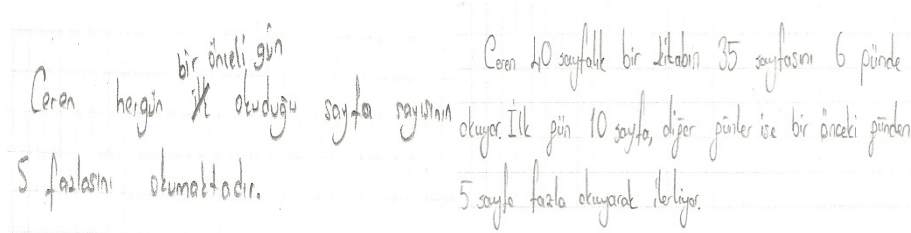 bir önceki gün
Ceren hergün okuduğu sayfa sayısının
5 fazlasını okumaktadır.
Ceren 40 sayfalık bir kitabın 35 sayfasını 6 günde
okuyor. İlk gün 10 sayfa, diğer günler ise bir önceki günden
5 sayfa fazla okuyarak ilerliyor.